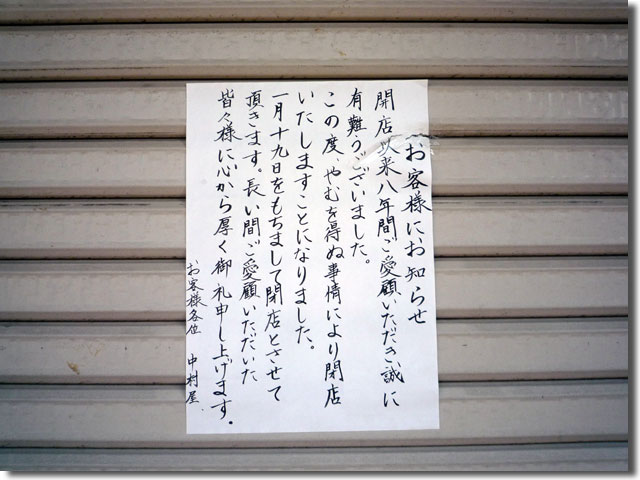 お客様にお知らせ
開店以来八年間ご愛顧いただき誠に
有難うございました。
この度、やむを得ぬ事情により閉店
いたしますことになりました。
一月十九日をもちまして閉店とさせて
頂きます。長い間ご愛顧いただいた
皆々様に心から厚く御礼申し上げます。
お客様各位 中村屋